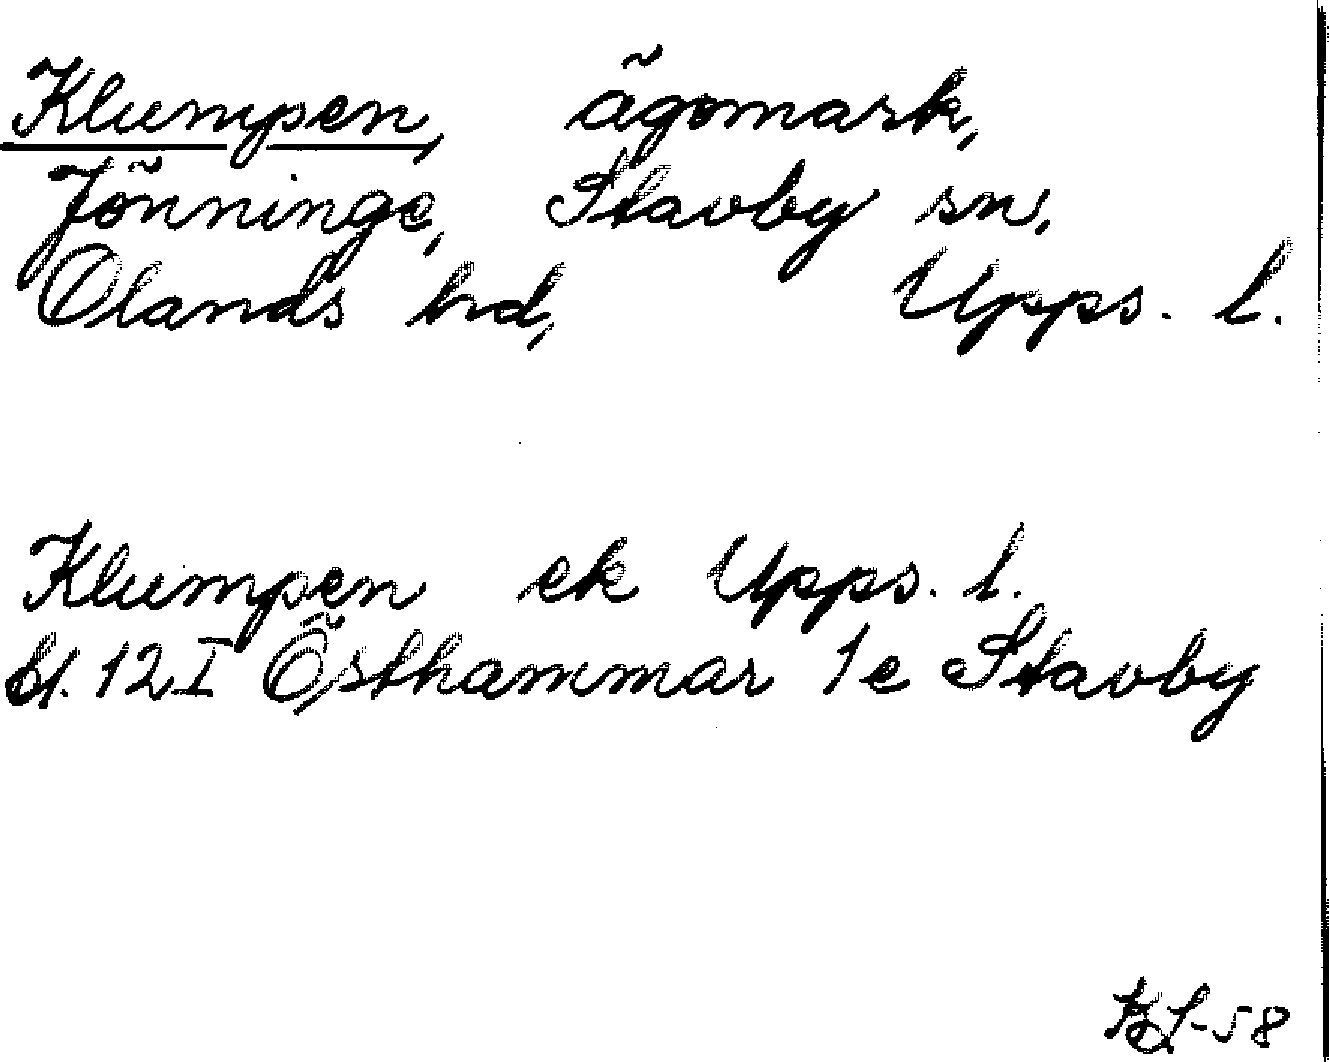 Klumpen, ägomark,
Jönninge, Stavby sn,
Olands hd, Upps. l.
Klumpen ek Upps. l.
bl. 12 I Östhammar 1e Stavby